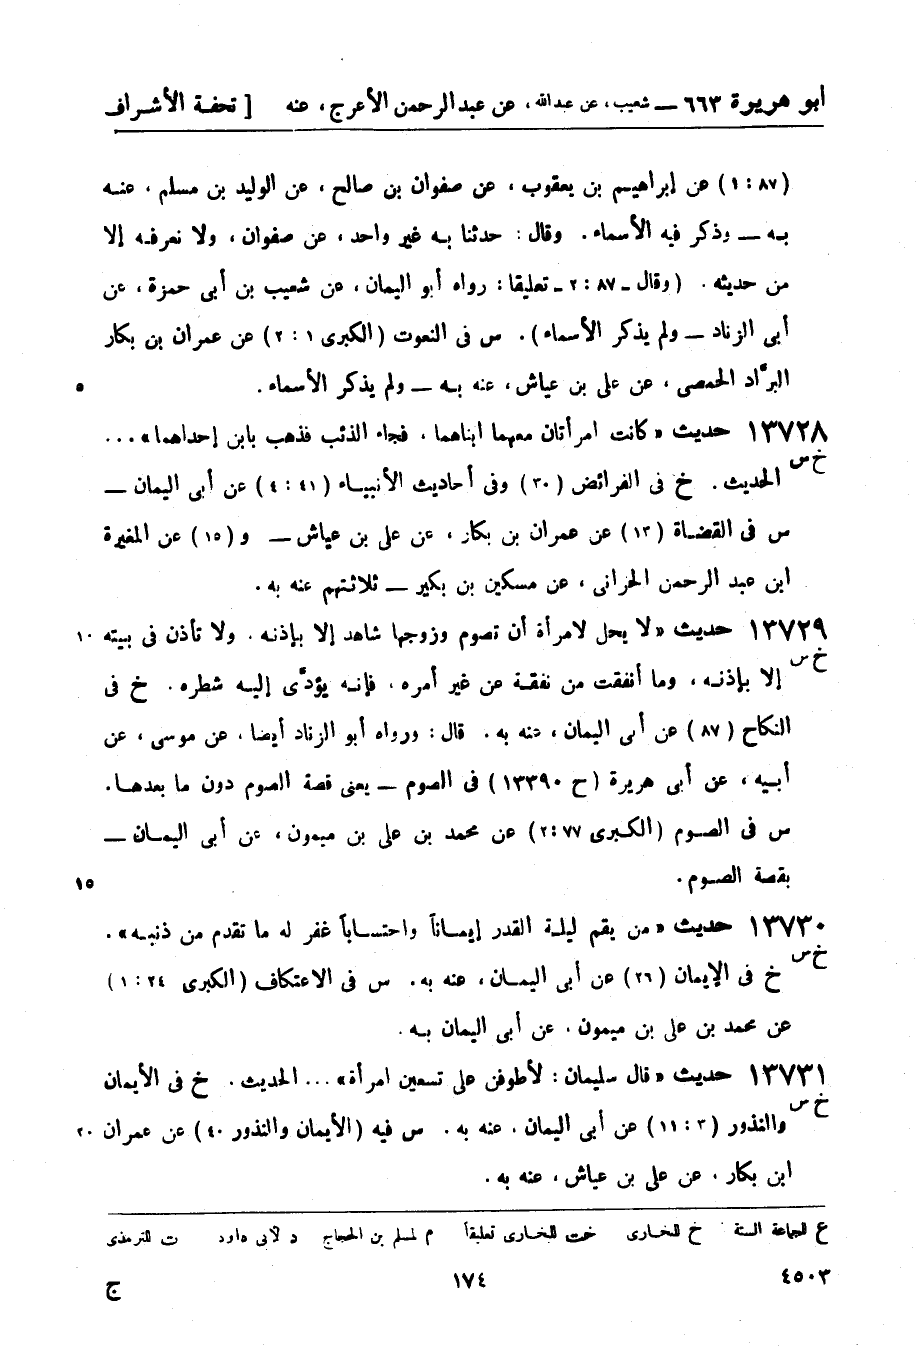 أبو هريرة ٦٦٣ ــ شعيب، عن عبدالله، عن عبدالرحمن الأعرج، عنه [ تحفة الأشراف
(٨٧ : ١) عن إبراهيم بن يعقوب، عن صفوان بن صالح، عن الوليد بن مسلم، عنه
به ــ وذكر فيه الأسماء. وقال: حدثنا به غير واحد، عن صفوان، ولا نعرفه إلا
من حديثه. (وقال ـ ٨٧ : ٢ ـ تعليقا: رواه أبو اليمان، عن شعيب بن أبى حمزة، عن
أبى الزناد ــ ولم يذكر الأسماء). س فى النعوت (الكبرى ١ : ٢) عن عمران بن بكار
البرَّاد الحمصى، عن على بن عياش، عنه به ــ ولم يذكر الأسماء. ٥
١٣٧٢٨ حديث «كانت امرأتان معهما ابناهما، فجاء الذئب فذهب بابن إحداهما»...
خ س الحديث. خ فى الفرائض (٣٠) وفى أحاديث الأنبياء (٤١ : ٤) عن أبى اليمان ــ
س فى القضاة (١٣) عن عمران بن بكار، عن على بن عياش ــ و (١٥) عن المغيرة
ابن عبد الرحمن الحرانى، عن مسكين بن بكير ــ ثلاثتهم عنه به.
١٣٧٢٩ حديث «لا يحل لامرأة أن تصوم وزوجها شاهد إلا بإذنه. ولا تأذن فى بيته ١٠
خ س إلا بإذنه، وما أنفقت من نفقة عن غير أمره، فإنه يؤدَّى إليه شطره. خ فى
النكاح (٨٧) عن أبى اليمان، عنه به. قال: ورواه أبو الزناد أيضا، عن موسى، عن
أبيه، عن أبى هريرة (ح ١٣٣٩٠) فى الصوم ــ يعنى قصة الصوم دون ما بعدها.
س فى الصوم (الكبرى ٧٧ : ٢) عن محمد بن على بن ميمون، عن أبى اليمان ــ
بقصة الصوم. ١٥
١٣٧٣٠ حديث «من يقم ليلة القدر إيماناً واحتساباً غفر له ما تقدم من ذنبه».
خ س خ فى الإيمان (٢٦) عن أبى اليمان، عنه به. س فى الاعتكاف (الكبرى ٢٤ : ١)
عن محمد بن على بن ميمون، عن أبى اليمان به.
١٣٧٣١ حديث «قال سليمان: لأطوفن على تسعين امرأة»... الحديث. خ فى الأيمان
خ س والنذور (٣ : ١١) عن أبى اليمان، عنه به. س فيه (الأيمان والنذور ٤٠) عن عمران ٢٠
ابن بكار، عن على بن عياش، عنه به.
ع للجماعة الستة خ للبخارى خت للبخارى تعليقاً م لمسلم بن الحجاج د لأبى داود ت للترمذى
٤٥٠٣ ١٧٤ ج